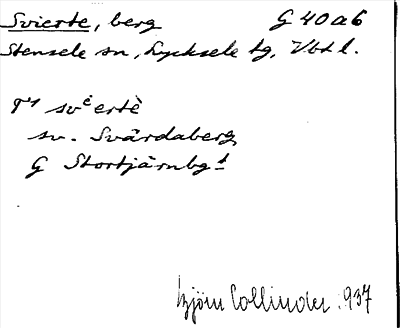 Svierte, berg G 40 a 6
Stensele sn, Lycksele tg, Vbtl.
svi̇ertè
sv. Svärdaberg
G Stortjärnbgt
Björn Collinder 1937